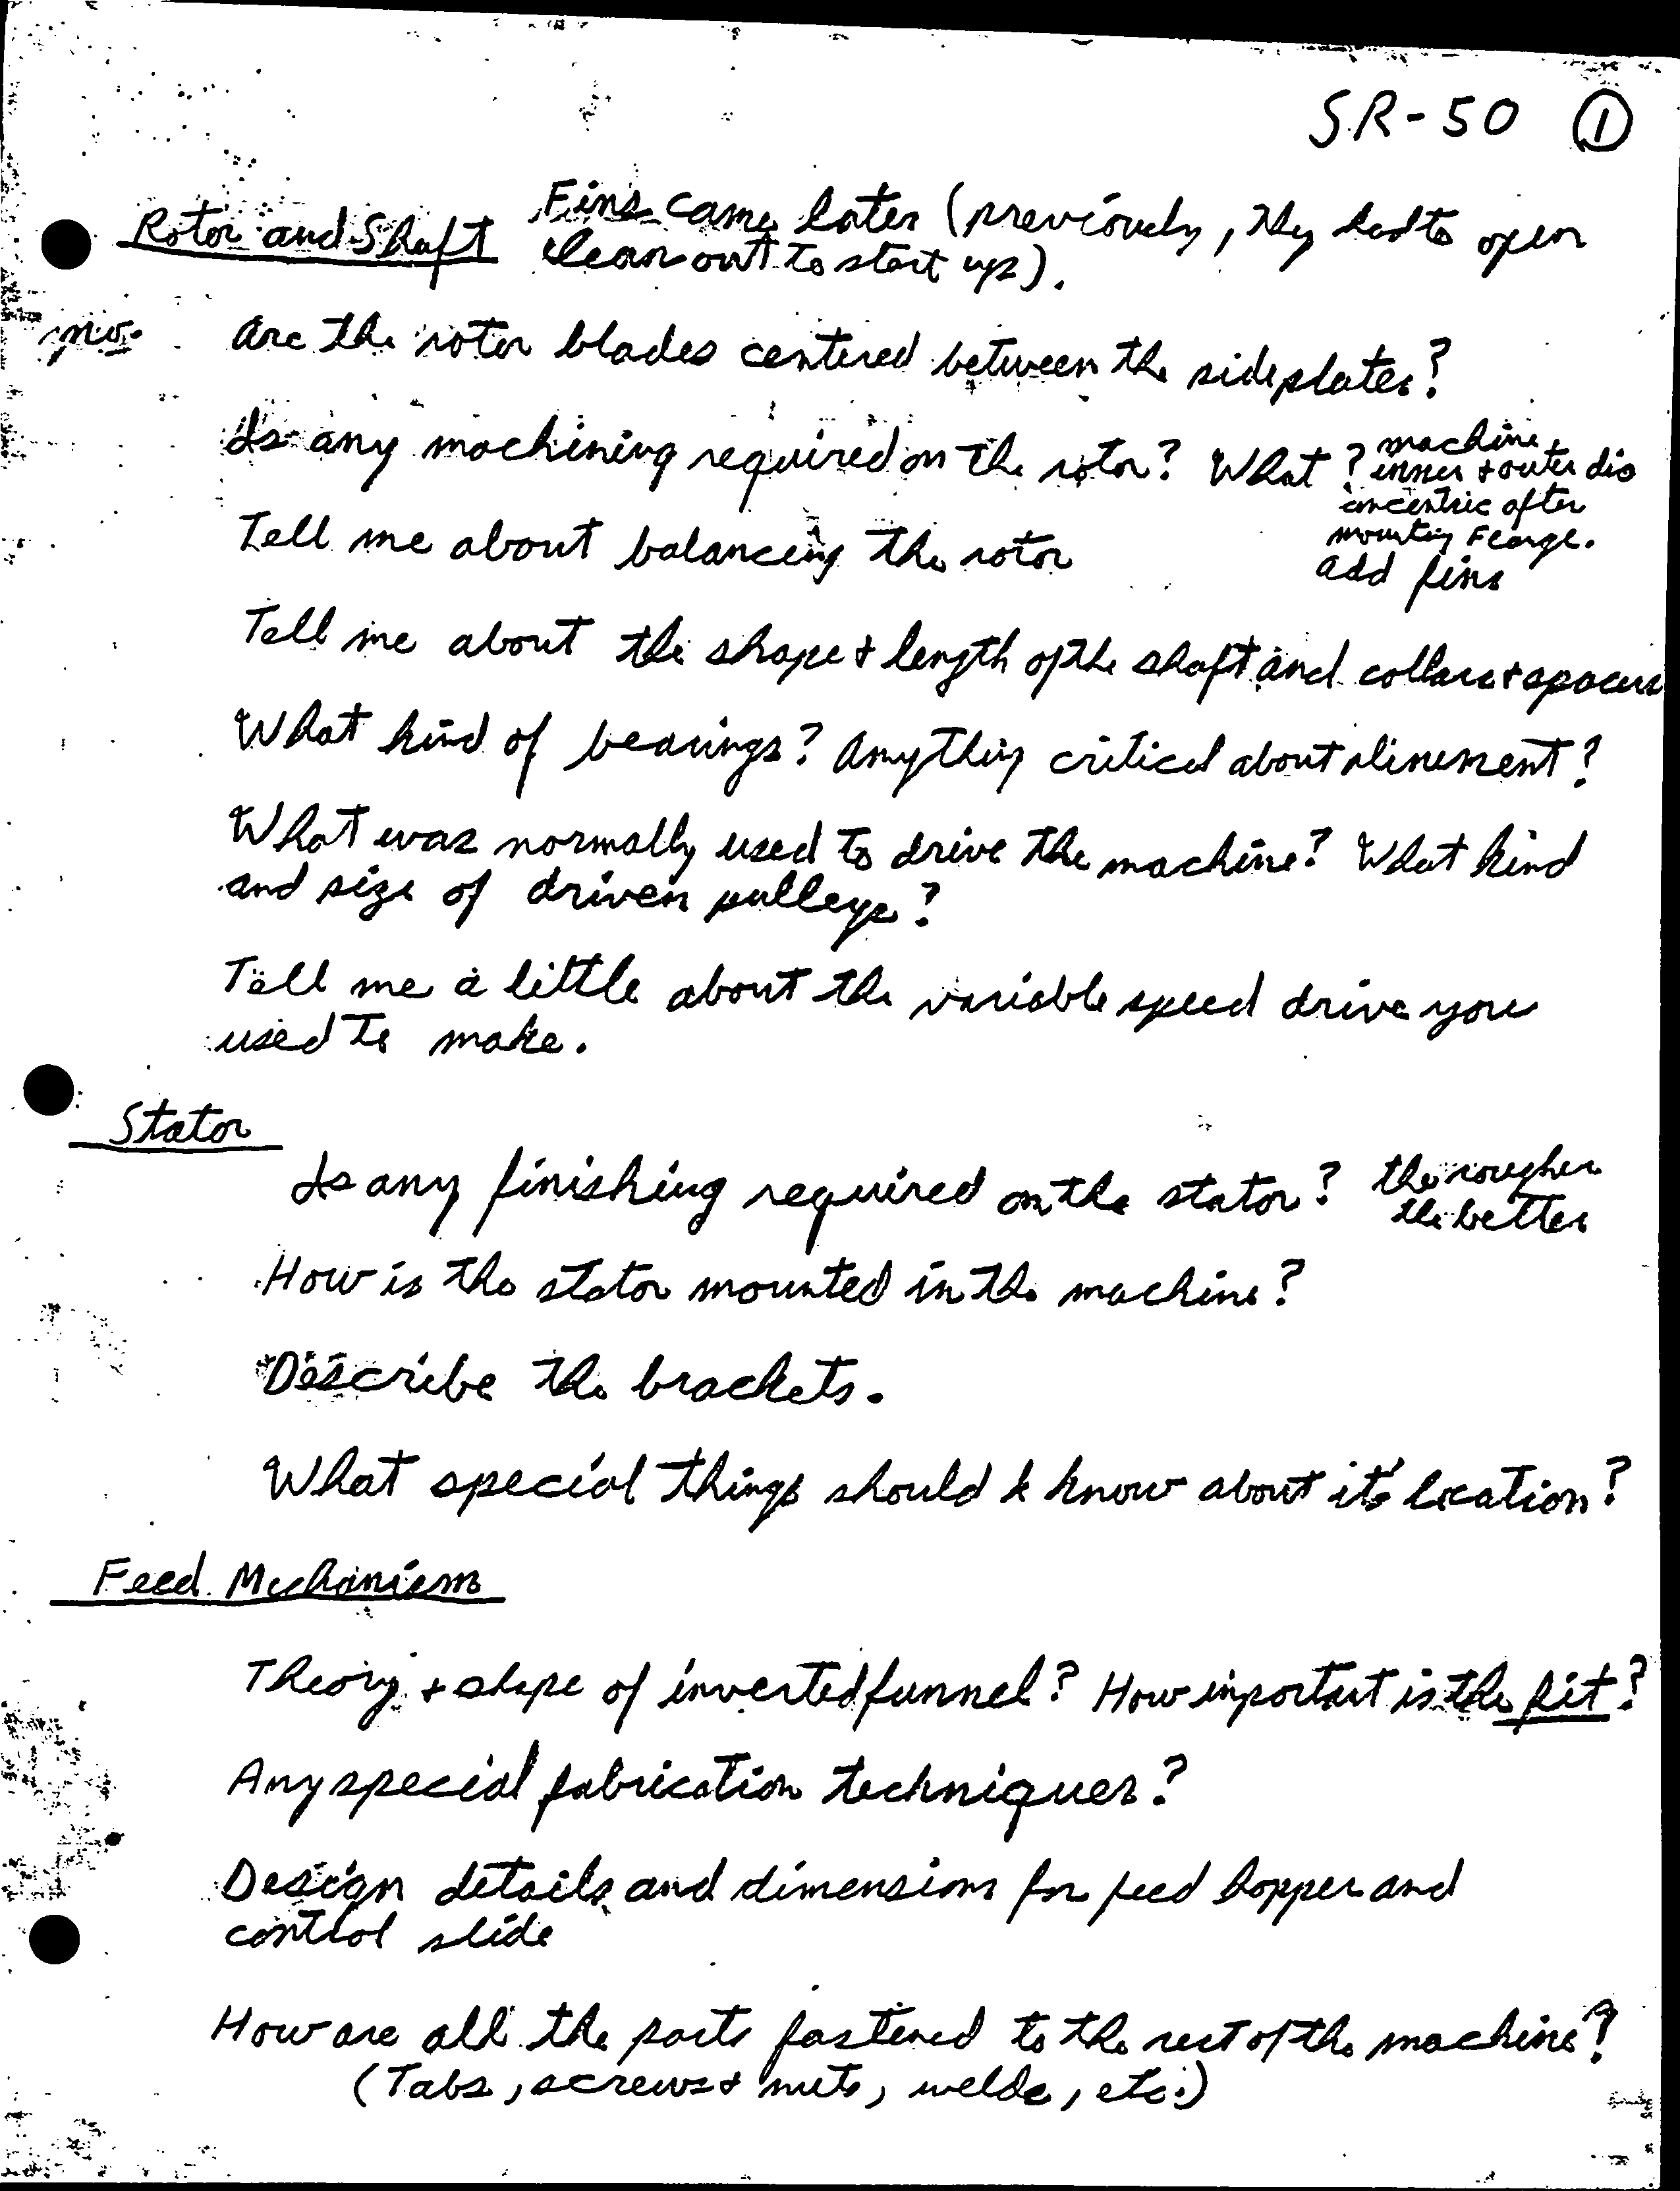 SR-50 ①
Rotor and Shaft Fins came later (previously, they had to open
clean out to start up).
no. Are the rotor blades centered between the sideplates?
Is any machining required on the rotor? What? machine
inner + outer dia
concentric after
mounting Flange.
add fins
Tell me about balancing the rotor
Tell me about the shape + length of the shaft and collars + spacers
What kind of bearings? Anything critical about alinement?
What was normally used to drive the machine? What kind
and size of driven pulleys?
Tell me a little about the variable speed drive you
used to make.
Stator
Is any finishing required on the stator? the rougher
the better
How is the stator mounted in the machine?
Describe the brackets.
What special things should I know about it's location?
Feed Mechanism
Theory + shape of inverted funnel? How important is the fit?
Any special fabrication techniques?
Design details and dimensions for feed hopper and
control slide
How are all the parts fastened to the rest of the machine?
(Tabs, screws + nuts, welds, etc.)